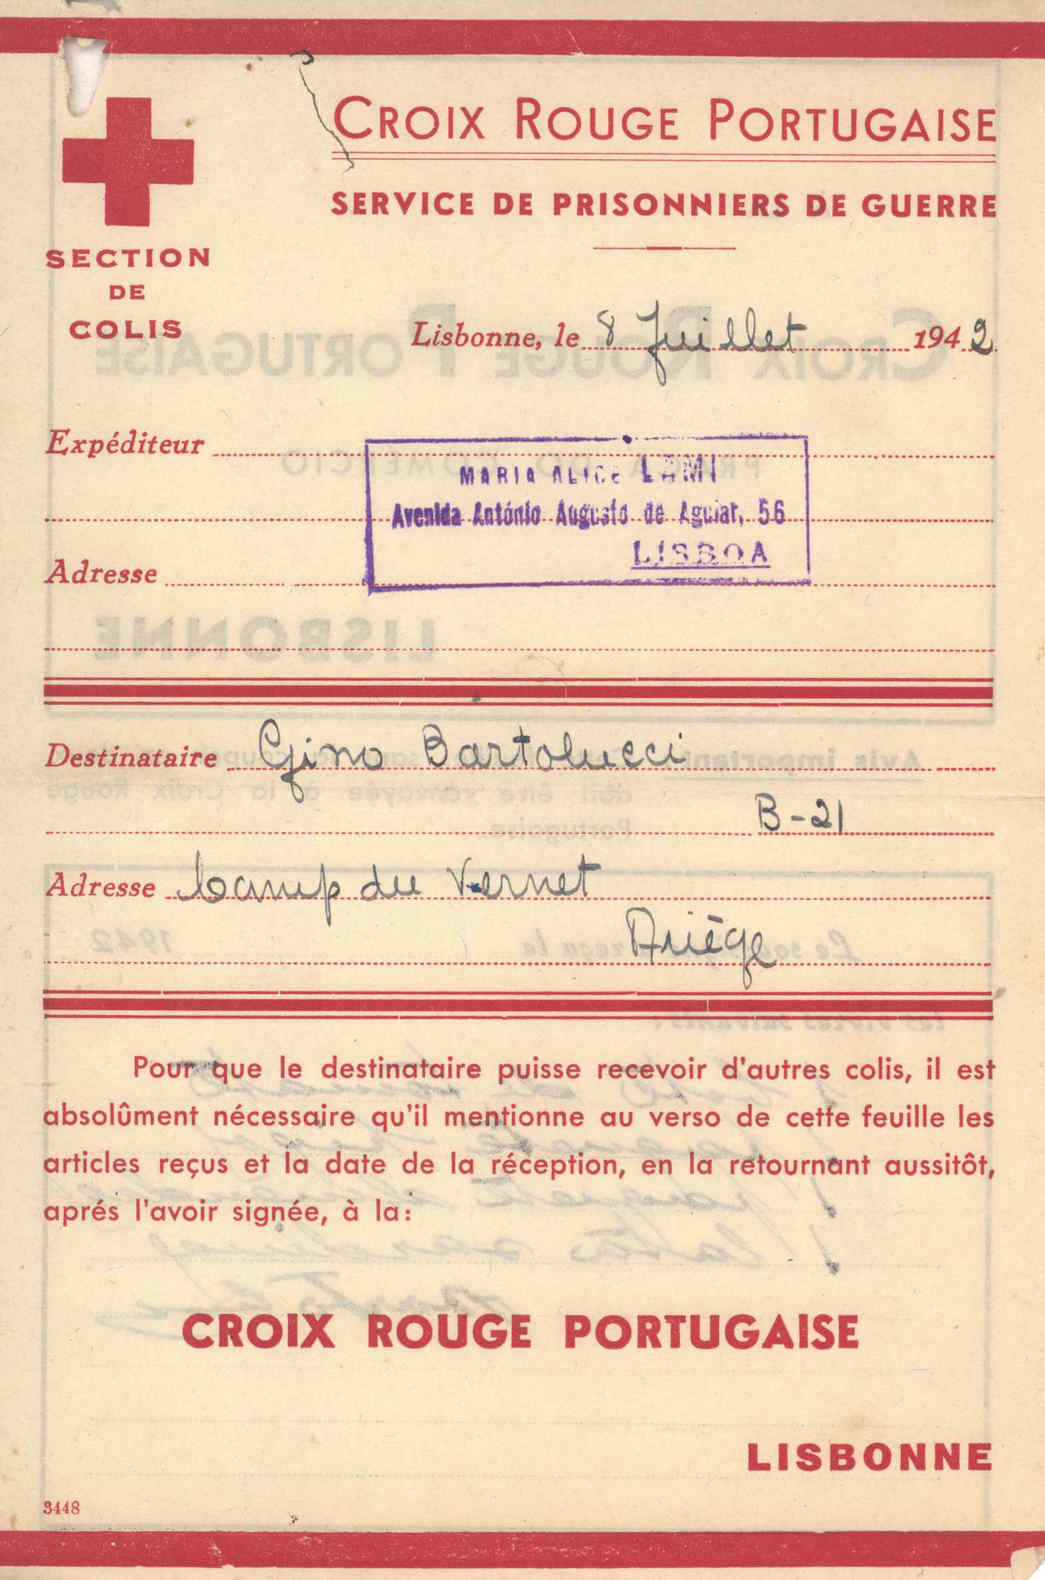 CROIX ROUGE PORTUGAISE
SERVICE DE PRISONNIERS DE GUERRE
SECTION
DE
COLIS
Lisbonne, le 8 Juillet 1942
Expéditeur
MARIA ALICE LAMI
Avenida António Augusto de Aguiar, 56
LISBOA
Adresse
Destinataire Gino Bartolucci
B-21
Adresse Camp du Vernet
Ariège
Pour que le destinataire puisse recevoir d'autres colis, il est
absolûment nécessaire qu'il mentionne au verso de cette feuille les
articles reçus et la date de la réception, en la retournant aussitôt,
aprés l'avoir signée, à la:
CROIX ROUGE PORTUGAISE
LISBONNE
3448